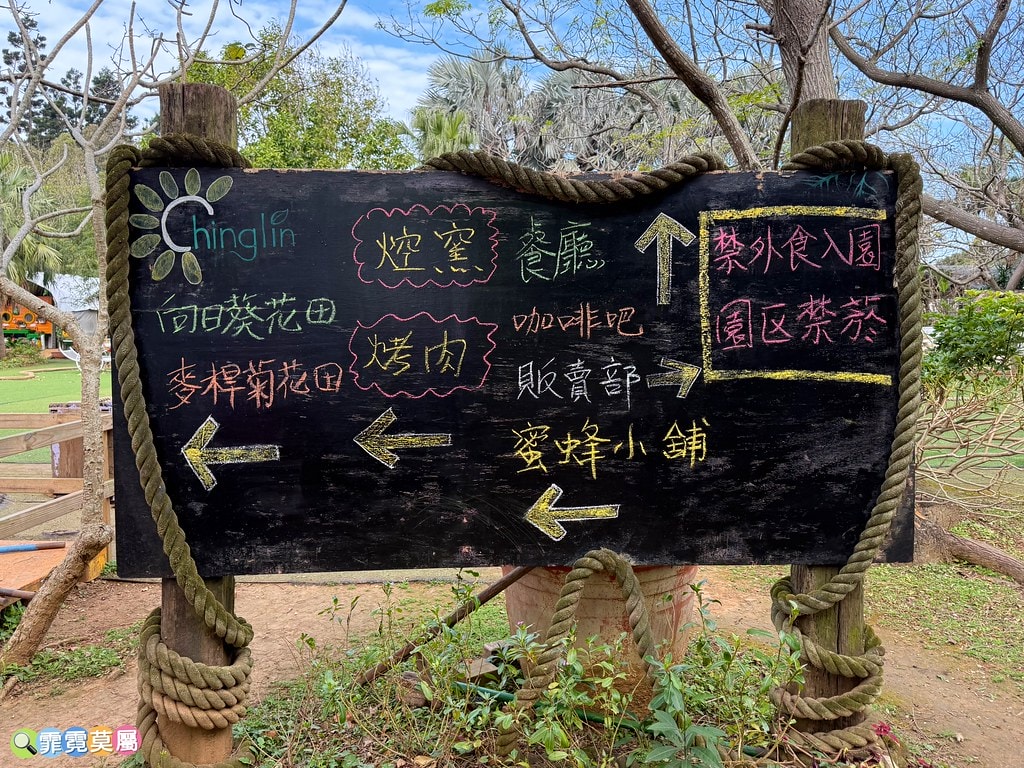 Chinglin
向日葵花田
麥桿菊花田
焢窯
烤肉
餐廳
咖啡吧
販賣部
蜜蜂小舖
禁外食入園
園区禁菸
霏霓莫屬